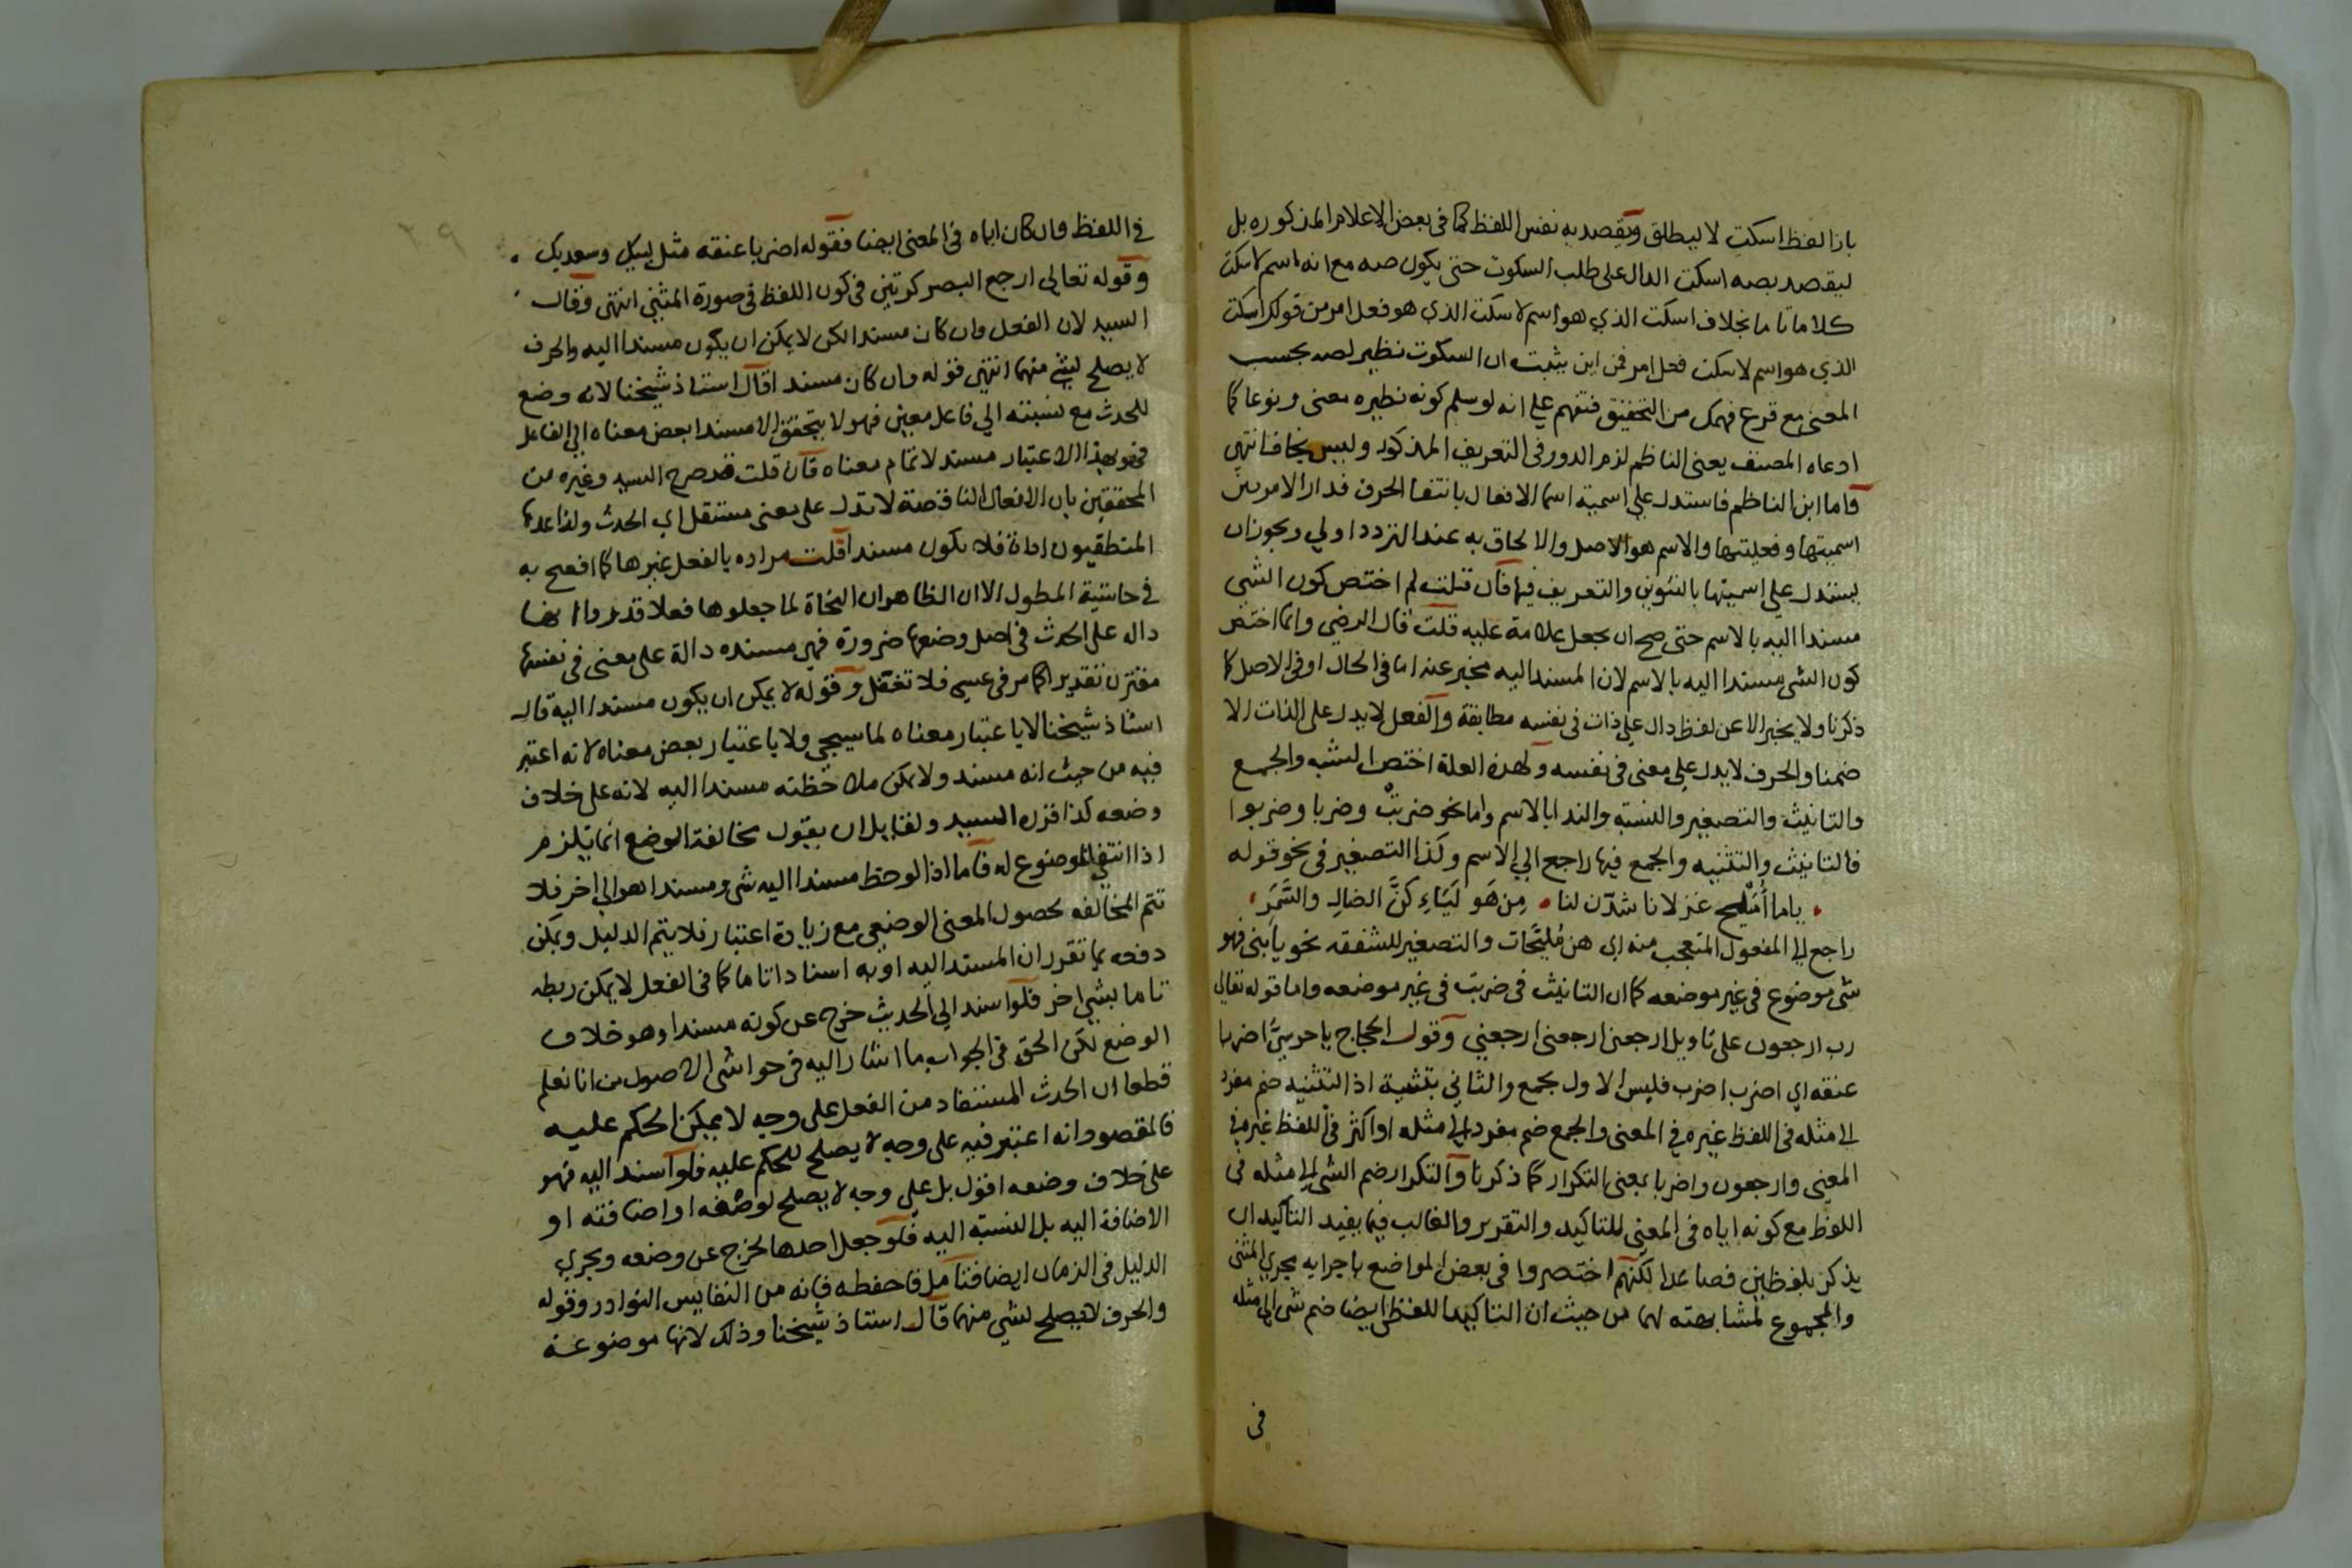 بازا لفظ اسكت لا ليطلق ويقصد به نفس اللفظ كما في بعض الاعلام المذكوره بل
ليقصد بصه اسكت الدال على طلب السكوت حتى يكون صه مع انه اسم لاسكت
كلاما تاما بخلاف اسكت الذي هو اسم لاسكت الذي هو فعل امر من قولك اسكت
الذي هو اسم لاسكت فعل امر فمن اين يثبت ان السكوت نظير لصه بحسب
المعنى مع قرع فهمك من التحقيق فتفهم على انه لو سلم كونه نظيره معنى ونوعا كما
ادعاه المصنف يعني الناظم لزم الدور في التعريف المذكور وليس بخاف انتهى
فاما ابن الناظم فاستدل على اسمية اسما الافعال بانتفا الحرف فدار الامر بين
اسميتها وفعليتها والاسم هو الاصل والالحاق به عند التردد اولي ويجوز ان
يستدل على اسميتها بالتنوين والتعريف فيها فان قلت لم اختص كون الشي
مسندا اليه بالاسم حتى صح ان يجعل علامة عليه قلت قال الرضي وانما اختص
كون الشي مسندا اليه بالاسم لان المسند اليه مخبر عنه اما في الحال او في الاصل كما
ذكرنا ولا يخبر الا عن لفظ دال على ذات في نفسه مطابقة والفعل لا يدل على الذات الا
ضمنا والحرف لا يدل على معنى في نفسه ولهذه العلة اختص التثنيه والجمع
والتانيث والتصغير والنسبة والندا بالاسم واما نحو ضربتْ وضربا وضربوا
فالتانيث والتثنيه والجمع فيها راجع الي الاسم وكذا التصغير في نحو قوله
ياما أُمَيْلِح غزلانا شدّن لنا من هَولَيّاءِ كُنَّ الضالِ والسَّمَرِ
راجع الى المفعول المتعجب منه اي هن مُلَيّحات والتصغير للشفقه نحو يا بني فهو
شي موضوع في غير موضعه كما ان التانيث في ضربت في غير موضعه واما قوله تعالي
رب ارجعون على تاويل ارجعني ارجعني ارجعني وقول الحجاج يا حرسيُّ اضربا
عنقه اي اضرب اضرب فليس الاول بجمع والثاني بتثنية اذ التثنيه ضم مفرد
الى مثله في اللفظ غيره في المعنى والجمع ضم مفرد الى مثله او اكثر في اللفظ غيره في
المعنى وارجعون واضربا بمعنى التكرار كما ذكرنا والتكرار ضم الشي الى مثله في
اللفظ مع كونه اياه في المعنى للتاكيد والتقرير والغالب فيما يفيد التاكيد ان
يذكر بلفظين فصاعدا لكنهم اختصروا في بعض المواضع باجرايه مجري المثنى
والمجموع لمشابهته لهما من حيث ان التاكيد اللفظي ايضا ضم شي الى مثله
في
٢٩
في اللفظ وان كان اياه في المعنى ايضا فقوله اضربا عنقه مثل لبيك وسعديك
وقوله تعالى ارجع البصر كرتين في كون اللفظ في صورة المثنى انتهى وقال
السيد لان الفعل وان كان مسندا لكن لا يمكن ان يكون مسندا اليه والحرف
لا يصلح لشي منهما انتهى قوله وان كان مسندا قال استاذ شيخنا لانه وضع
للحدث مع نسبته الي فاعل معين فهو لا يتحقق الا مسندا بعض معناه الي الفاعل
فهو بهذا الاعتبار مسند لا تمام معناه فان قلت قد صرح السيد وغيره من
المحققين بان الافعال الناقصة لا تدل على معنى مستقل اي الحدث ولذا عدها
المنطقيون اداة فلا يكون مسندا قلت مراده بالفعل غيرها كما افصح به
في حاشية المطول الا ان الظاهر ان النحاة لما جعلوها فعلا قدروا انها
دال على الحدث في اصل وضعها ضرورة فهي مسنده دالة على معنى في نفسها
مقترن تقديرا كما مر في عسى فلا تغفل وقوله لا يمكن ان يكون مسندا اليه قال
استاذ شيخنا لا باعتبار معناه لما سيجي ولا باعتبار بعض معناه لانه اعتبر
فيه من حيث انه مسند ولا يمكن ملاحظته مسندا اليه لانه على خلاف
وضعه كذا قرره السيد ولقايل ان يقول مخالفة الوضع انما يلزم
اذا انتفى الموضوع له فاما اذا لوحظ مسندا اليه شي ومسندا هو الى اخر فلا
تتم المخالفه لحصول المعنى الوضعي مع زيادة اعتبار فلا يتم الدليل ويمكن
دفعه بما تقرر ان المسند اليه او به اسنادا تاما كما في الفعل لا يمكن ربطه
تاما بشي اخر فلو اسند الي الحديث خرج عن كونه مسندا وهو خلاف
الوضع لكن الحق في الجواب ما اشار اليه في حواشي الاصول من انا نعلم
قطعا ان الحدث المستفاد من الفعل على وجه لا يمكن الحكم عليه
فالمقصود انه اعتبر فيه على وجه لا يصلح للحكم عليه فلو اسند اليه فهو
على خلاف وضعه اقول بل على وجه لا يصلح لوصفه او اضافته او
الاضافة اليه بل النسبة اليه فلو جعل احدها لخرج عن وضعه ويجري
الدليل في الزمان ايضا فتامل فاحفظه فانه من النفايس النوادر وقوله
والحرف لا يصلح لشي منهما قال استاذ شيخنا وذلك لانها موضوعة